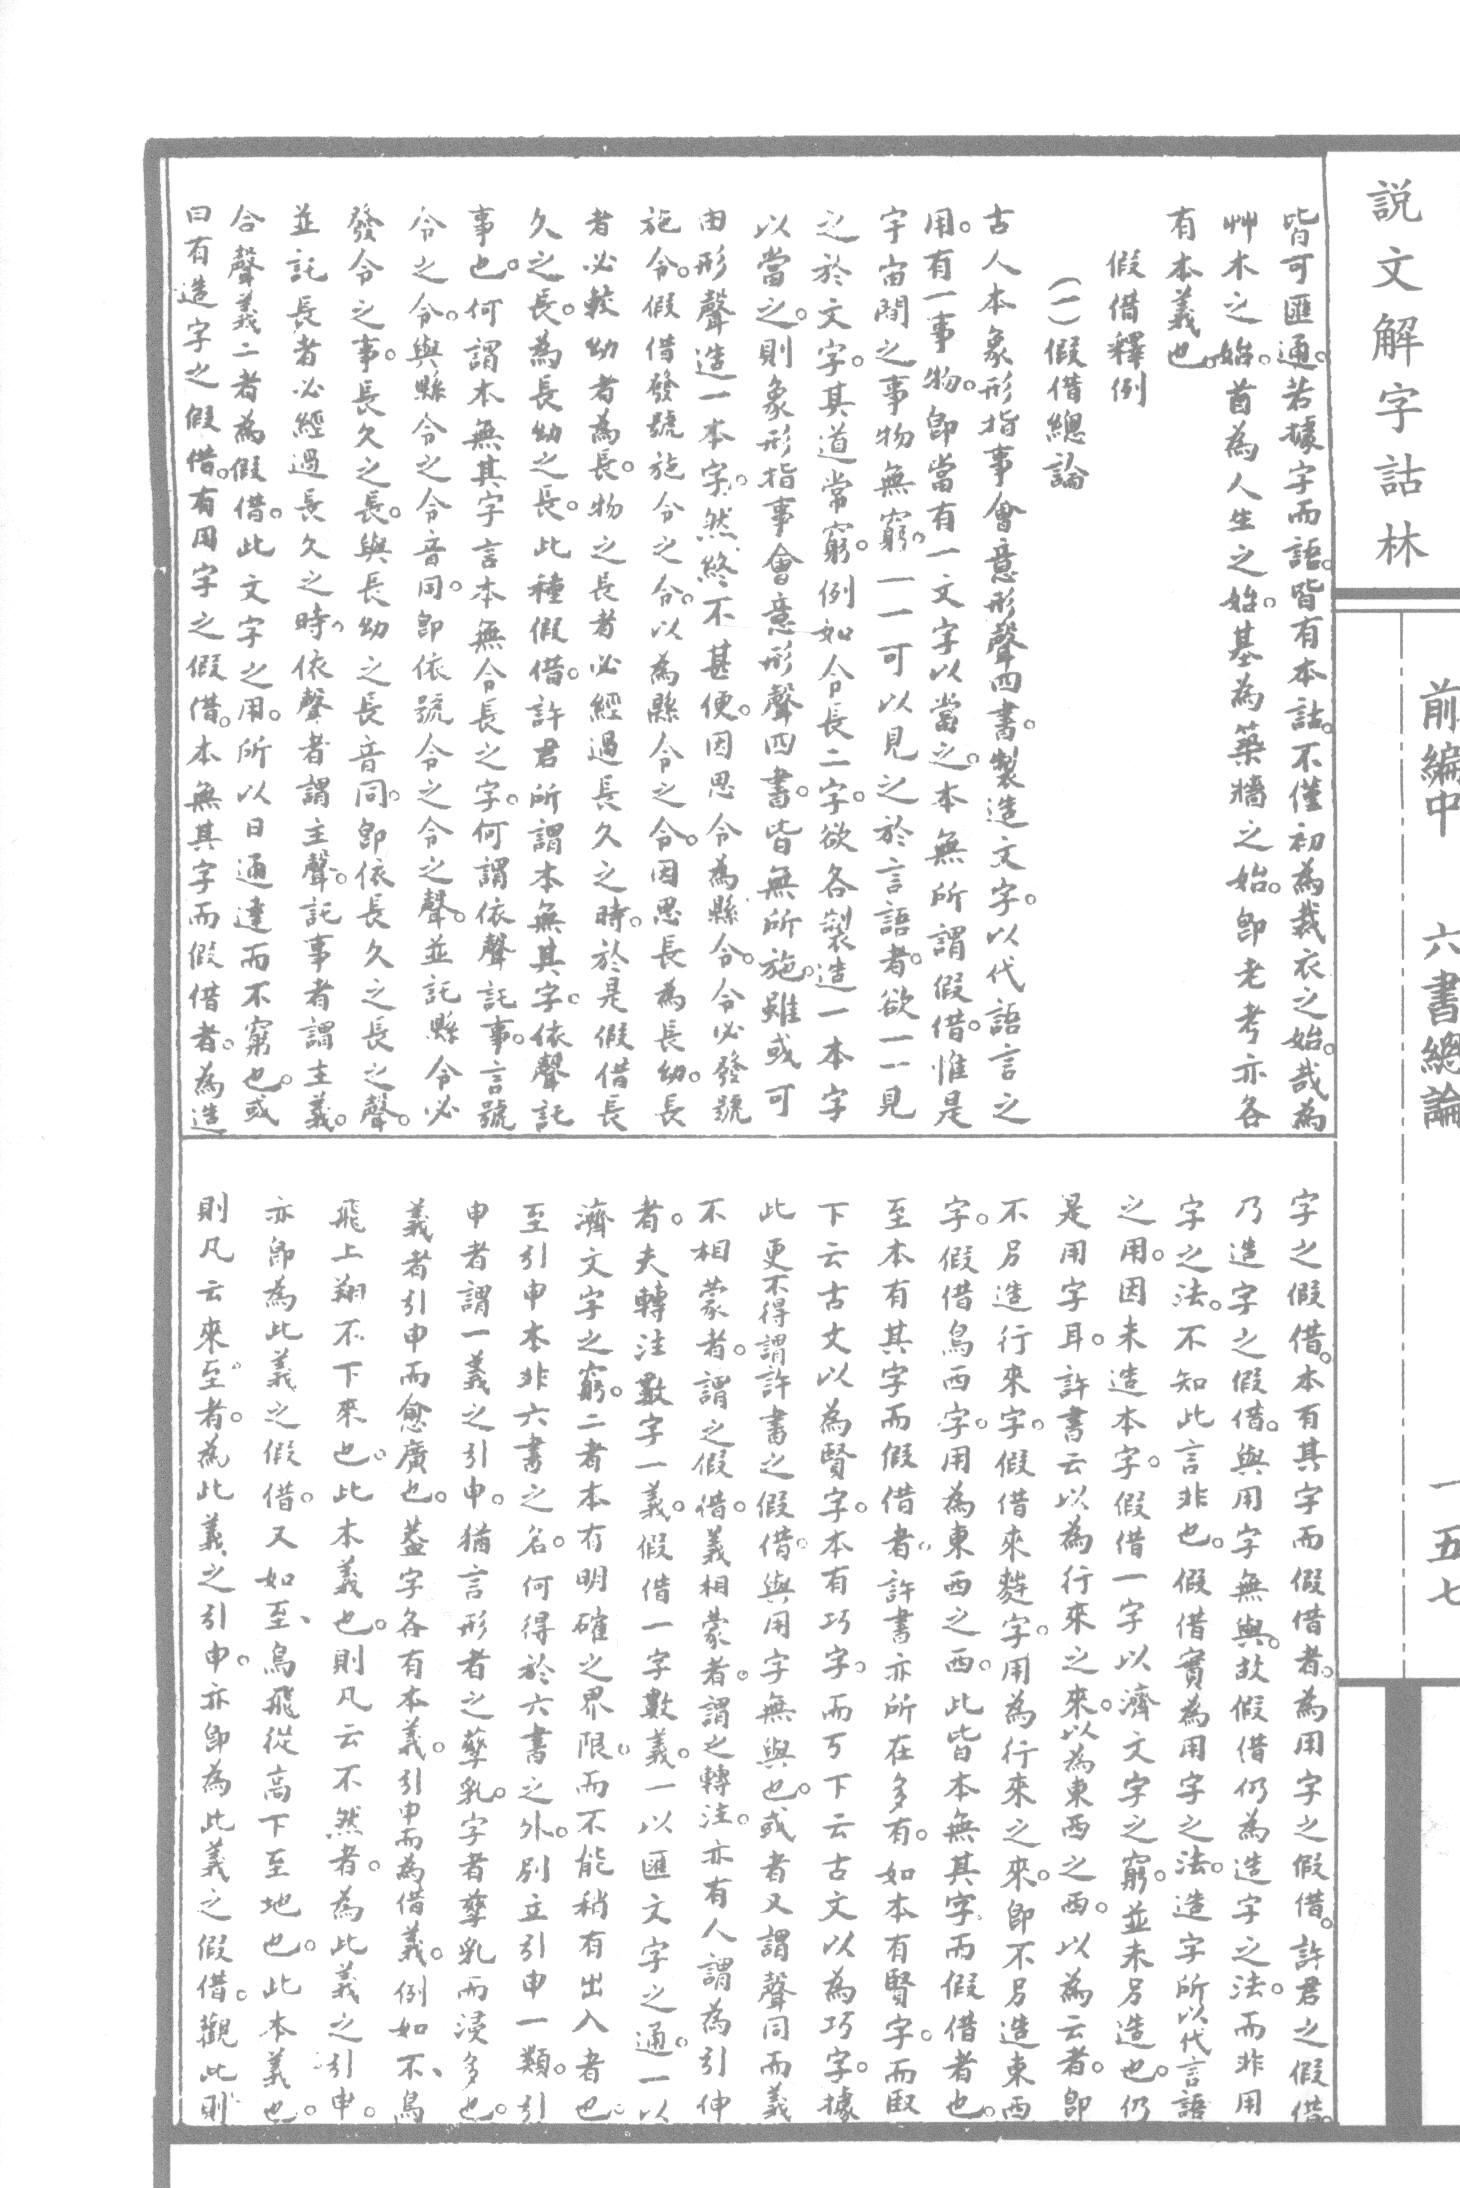 説文解字詁林
前編中　六書總論　一五七
皆可匯通。若據字而語。皆有本詁。不僅初為裁衣之始。哉為
艸木之始。首為人生之始。基為築牆之始。即老考亦各
有本義也。
假借釋例
（一）假借總論
古人本象形指事會意形聲四書。製造文字。以代語言之
用。有一事物。即當有一文字以當之。本無所謂假借。惟是
宇宙間之事物無窮。一一可以見之於言語者。欲一一見
之於文字。其道常窮。例如令長二字。欲各製造一本字
以當之。則象形指事會意形聲四書。皆無所施。雖或可
由形聲造一本字。然終不甚便。因思令為縣令。令必發號
施令。假借發號施令之令。以為縣令之令。因思長為長幼。長
者必較幼者為長。物之長者必經過長久之時。於是假借長
久之長。為長幼之長。此種假借。許君所謂本無其字。依聲託
事也。何謂本無其字。言本無令長之字。何謂依聲託事。言號
令之令。與縣令之令音同。即依號令之令之聲。並託縣令必
發令之事。長久之長。與長幼之長音同。即依長久之長之聲。
並託長者必經過長久之時。依聲者謂主聲。託事者謂主義。
合聲義二者為假借。此文字之用。所以日通達而不窮也。或
曰有造字之假借。有用字之假借。本無其字而假借者。為造
字之假借。本有其字而假借者。為用字之假借。許君之假借。
乃造字之假借。與用字無與。故假借仍為造字之法。而非用
字之法。不知此言非也。假借實為用字之法。造字所以代言語
之用。因未造本字。假借一字以濟文字之窮。並未另造也。仍
是用字耳。許書云以為行來之來。以為東西之西。以為云者。即
不另造行來字。假借來麰字。用為行來之來。即不另造東西
字。假借鳥西字。用為東西之西。此皆本無其字而假借者也。
至本有其字而假借者。許書亦所在多有。如本有賢字。而臤
下云古文以為賢字。本有巧字。而丂下云古文以為巧字。據
此更不得謂許書之假借。與用字無與也。或者又謂聲同而義
不相蒙者。謂之假借。義相蒙者。謂之轉注。亦有人謂為引伸
者。夫轉注數字一義。假借一字數義。一以匯文字之通。一以
濟文字之窮。二者本有明確之界限。而不能稍有出入者也。
至引申本非六書之名。何得於六書之外。別立引申一類。引
申者謂一義之引申。猶言形者之孳乳。字者孳乳而浸多也。
義者引申而愈廣也。蓋字各有本義。引申而為借義。例如不、鳥
飛上翔不下來也。此本義也。則凡云不然者。為此義之引申。
亦即為此義之假借。又如至、鳥飛從高下至地也。此本義也。
則凡云來至者。為此義之引申。亦即為此義之假借。觀此則